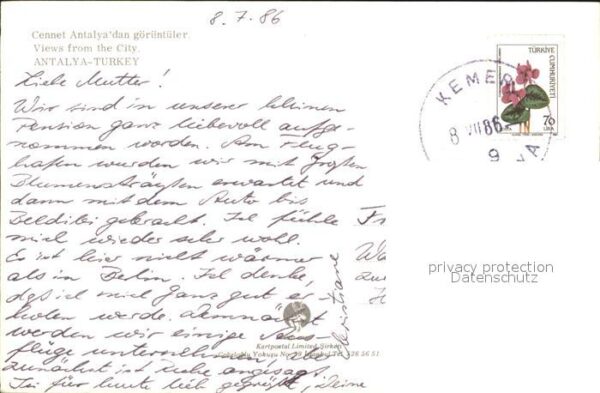 8.7.86
Cennet Antalya'dan görüntüler
Views from the City.
ANTALYA-TURKEY
Liebe Mutter!
Wir sind in unserer kleinen
Pension ganz liebevoll aufge-
nommen worden. Am Flug-
hafen wurden wir mit großen
Blumensträußen erwartet und
dann mit dem Auto bis
Beldibi gebracht. Ich fühle
mich wieder sehr wohl.
Es ist hier nicht wärmer
als in Berlin. Ich denke,
daß ich mich ganz gut er-
holen werde. Demnächst
werden wir einige Aus-
flüge unternehmen,
zunächst ist Ruhe angesagt.
Sei für heute lieb gegrüßt, Deine
Christiane
Kartpostal Limited Şirketi
Yokuşu No. İstanbul Tel. 528 56 51
TÜRKİYE
CUMHURİYETİ
70
LİRA
KEMER
8 VII 86
9
privacy protection
Datenschutz